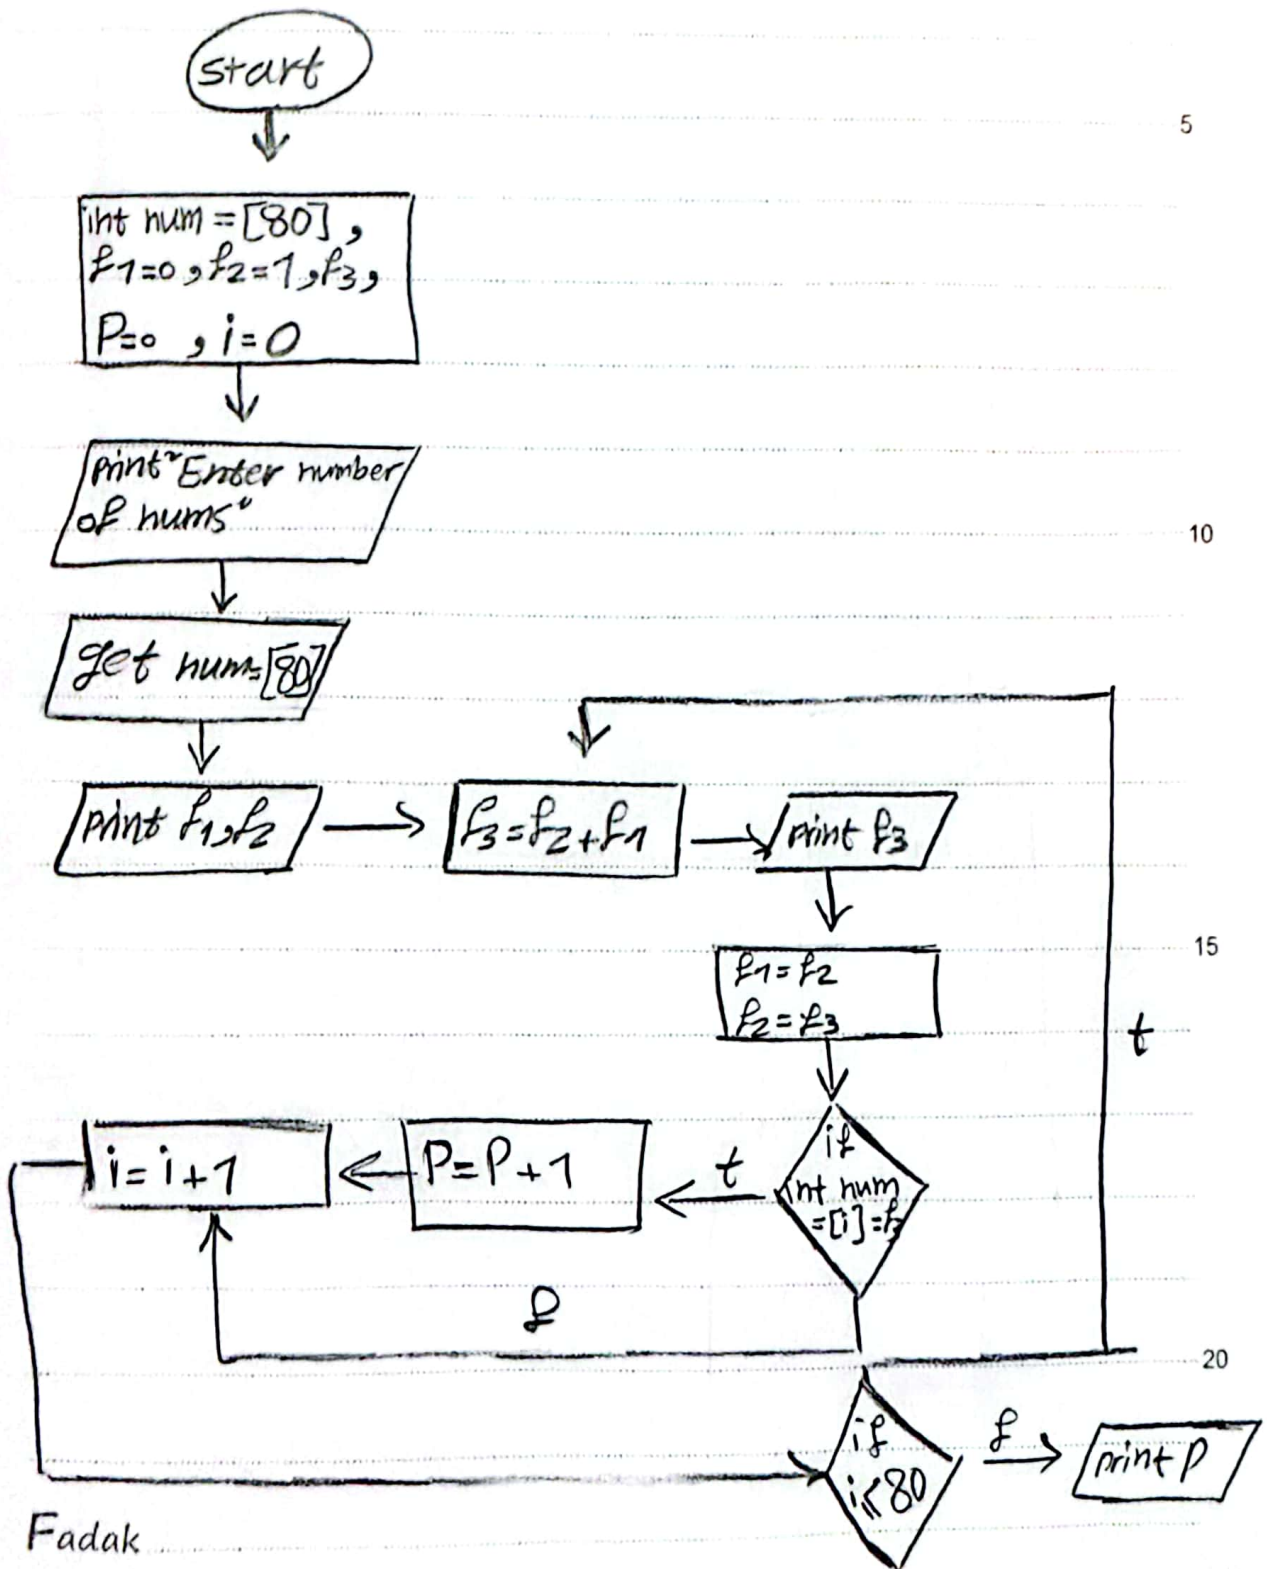 start
5
int num = [80] ,
f1=0 , f2=1 , f3 ,
P=0 , i=0
print "Enter number
of nums"
10
get num=[80]
print f1,f2
f3=f2+f1
print f3
15
f1=f2
f2=f3
t
i=i+1
P=P+1
t
if
int num
=[i]=f3
f
20
if
i≤80
f
print P
Fadak